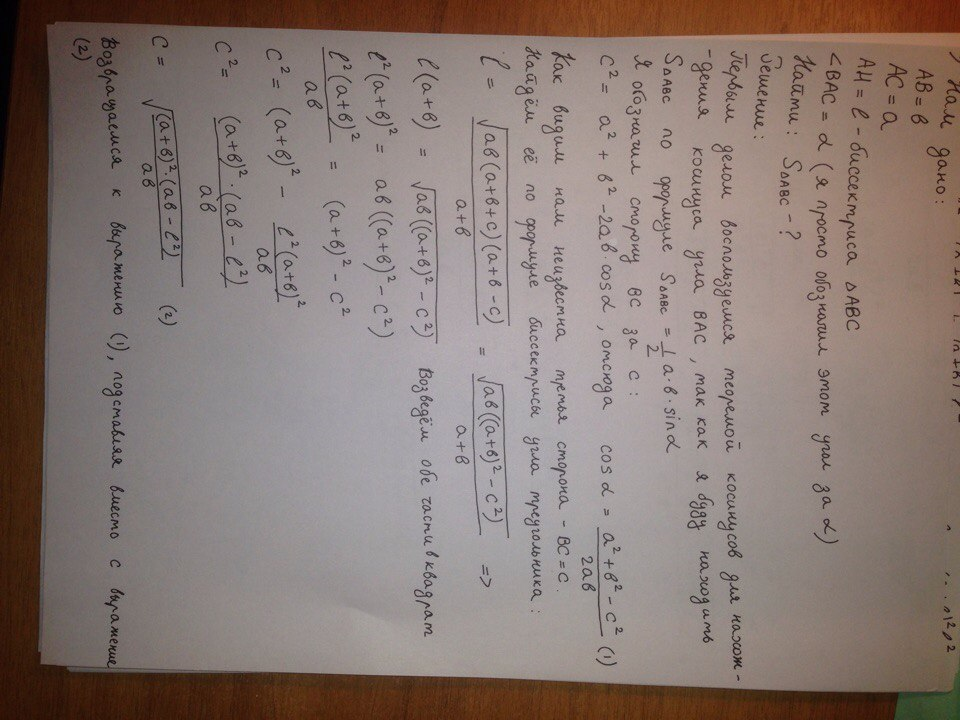 ) Нам дано:
AB = в
AC = a
AH = ℓ - биссектриса △ABC
∠BAC = α (я просто обозначил этот угол за α)
Найти: S△ABC - ?
Решение:
Первым делом воспользуемся теоремой косинусов для нахож-
-дения косинуса угла BAC, так как я буду находить
S△ABC по формуле S△ABC = 1/2 a·в·sinα
Я обозначил сторону BC за c:
c² = a² + в² - 2aв·cosα, отсюда cosα = (a² + в² - c²)/(2aв) (1)
Как видим нам неизвестна третья сторона - BC = c.
Найдём её по формуле биссектрисы угла треугольника:
ℓ = √(aв(a+в+c)(a+в-c))/(a+в) = √(aв((a+в)² - c²))/(a+в) =>
ℓ(a+в) = √(aв((a+в)² - c²)) Возведём обе части в квадрат
ℓ²(a+в)² = aв((a+в)² - c²)
ℓ²(a+в)²/(aв) = (a+в)² - c²
c² = (a+в)² - ℓ²(a+в)²/(aв)
c² = (a+в)²·(aв - ℓ²)/(aв)
c = √((a+в)²·(aв - ℓ²)/(aв)) (2)
Возвращаемся к выражению (1), подставляя вместо c выражение
(2)